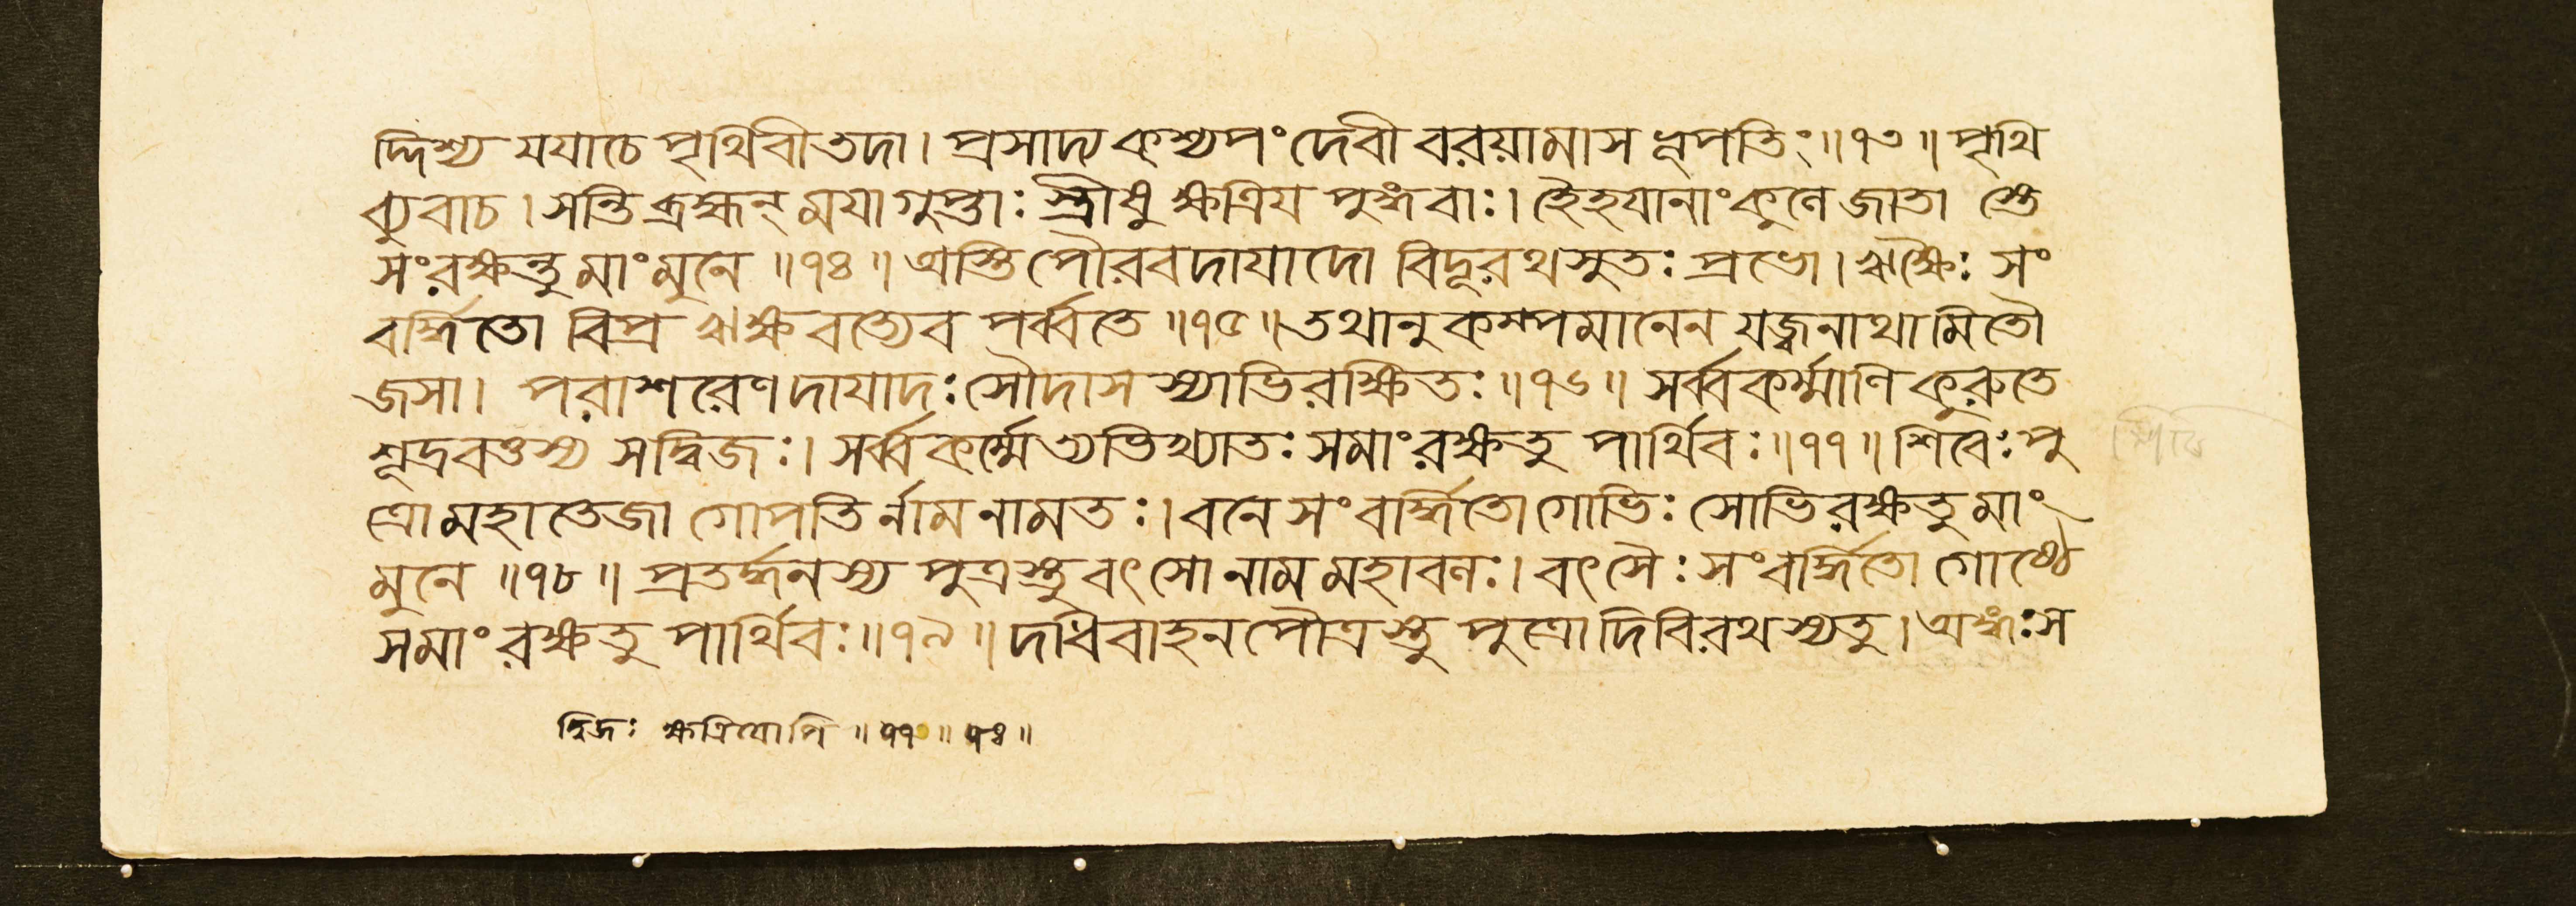 দ্দিশ্য যযাচে পৃথিবী তদা। প্রসাদ্য কশ্যপং দেবী বরয়ামাস ভূপতিং॥৭৩॥ পৃথি
ব্যুবাচ। সন্তি ব্রহ্মন্ ময়া গুপ্তাঃ স্ত্রীষু ক্ষত্রিয় পুঙ্গবাঃ। হৈহয়ানাং কুলে জাতা স্তে
সংরক্ষন্তু মাং মুনে ॥৭৪॥ অস্তি পৌরবদায়াদো বিদূরথ সুতঃ প্রভো। ঋক্ষৈঃ সং
বর্দ্ধিতো বিপ্র ঋক্ষবত্যেব পর্ব্বতে ॥৭৫॥ তথানুকম্পমানেন যজ্বনাথামিতৌ
জসা। পরাশরেণ দায়াদঃ সৌদাস স্যাভিরক্ষিতঃ ॥৭৬॥ সর্ব্বকর্ম্মাণি কুরুতে
শূদ্রবত্তস্য সদ্বিজঃ। সর্ব্বকর্ম্মেত্যভিখ্যাতঃ সমাং রক্ষতু পার্থিবঃ ॥৭৭॥ শিবেঃ পু
ত্রো মহাতেজা গোপতি র্নাম নামতঃ। বনে সংবর্দ্ধিতো গোভিঃ সোভিরক্ষতু মাং
মুনে ॥৭৮॥ প্রতর্দ্দনস্য পুত্রস্তু বৎসো নাম মহাবলঃ। বৎসৈঃ সংবর্দ্ধিতো গোষ্ঠে
সমাং রক্ষতু পার্থিবঃ ॥৭৯॥ দধিবাহন পৌত্রস্তু পুত্রো দিবিরথস্যতু। অঙ্গঃ স
দ্বিজঃ ক্ষত্রিয়োপি ॥ ৭৭ ॥ ৭৪ ॥